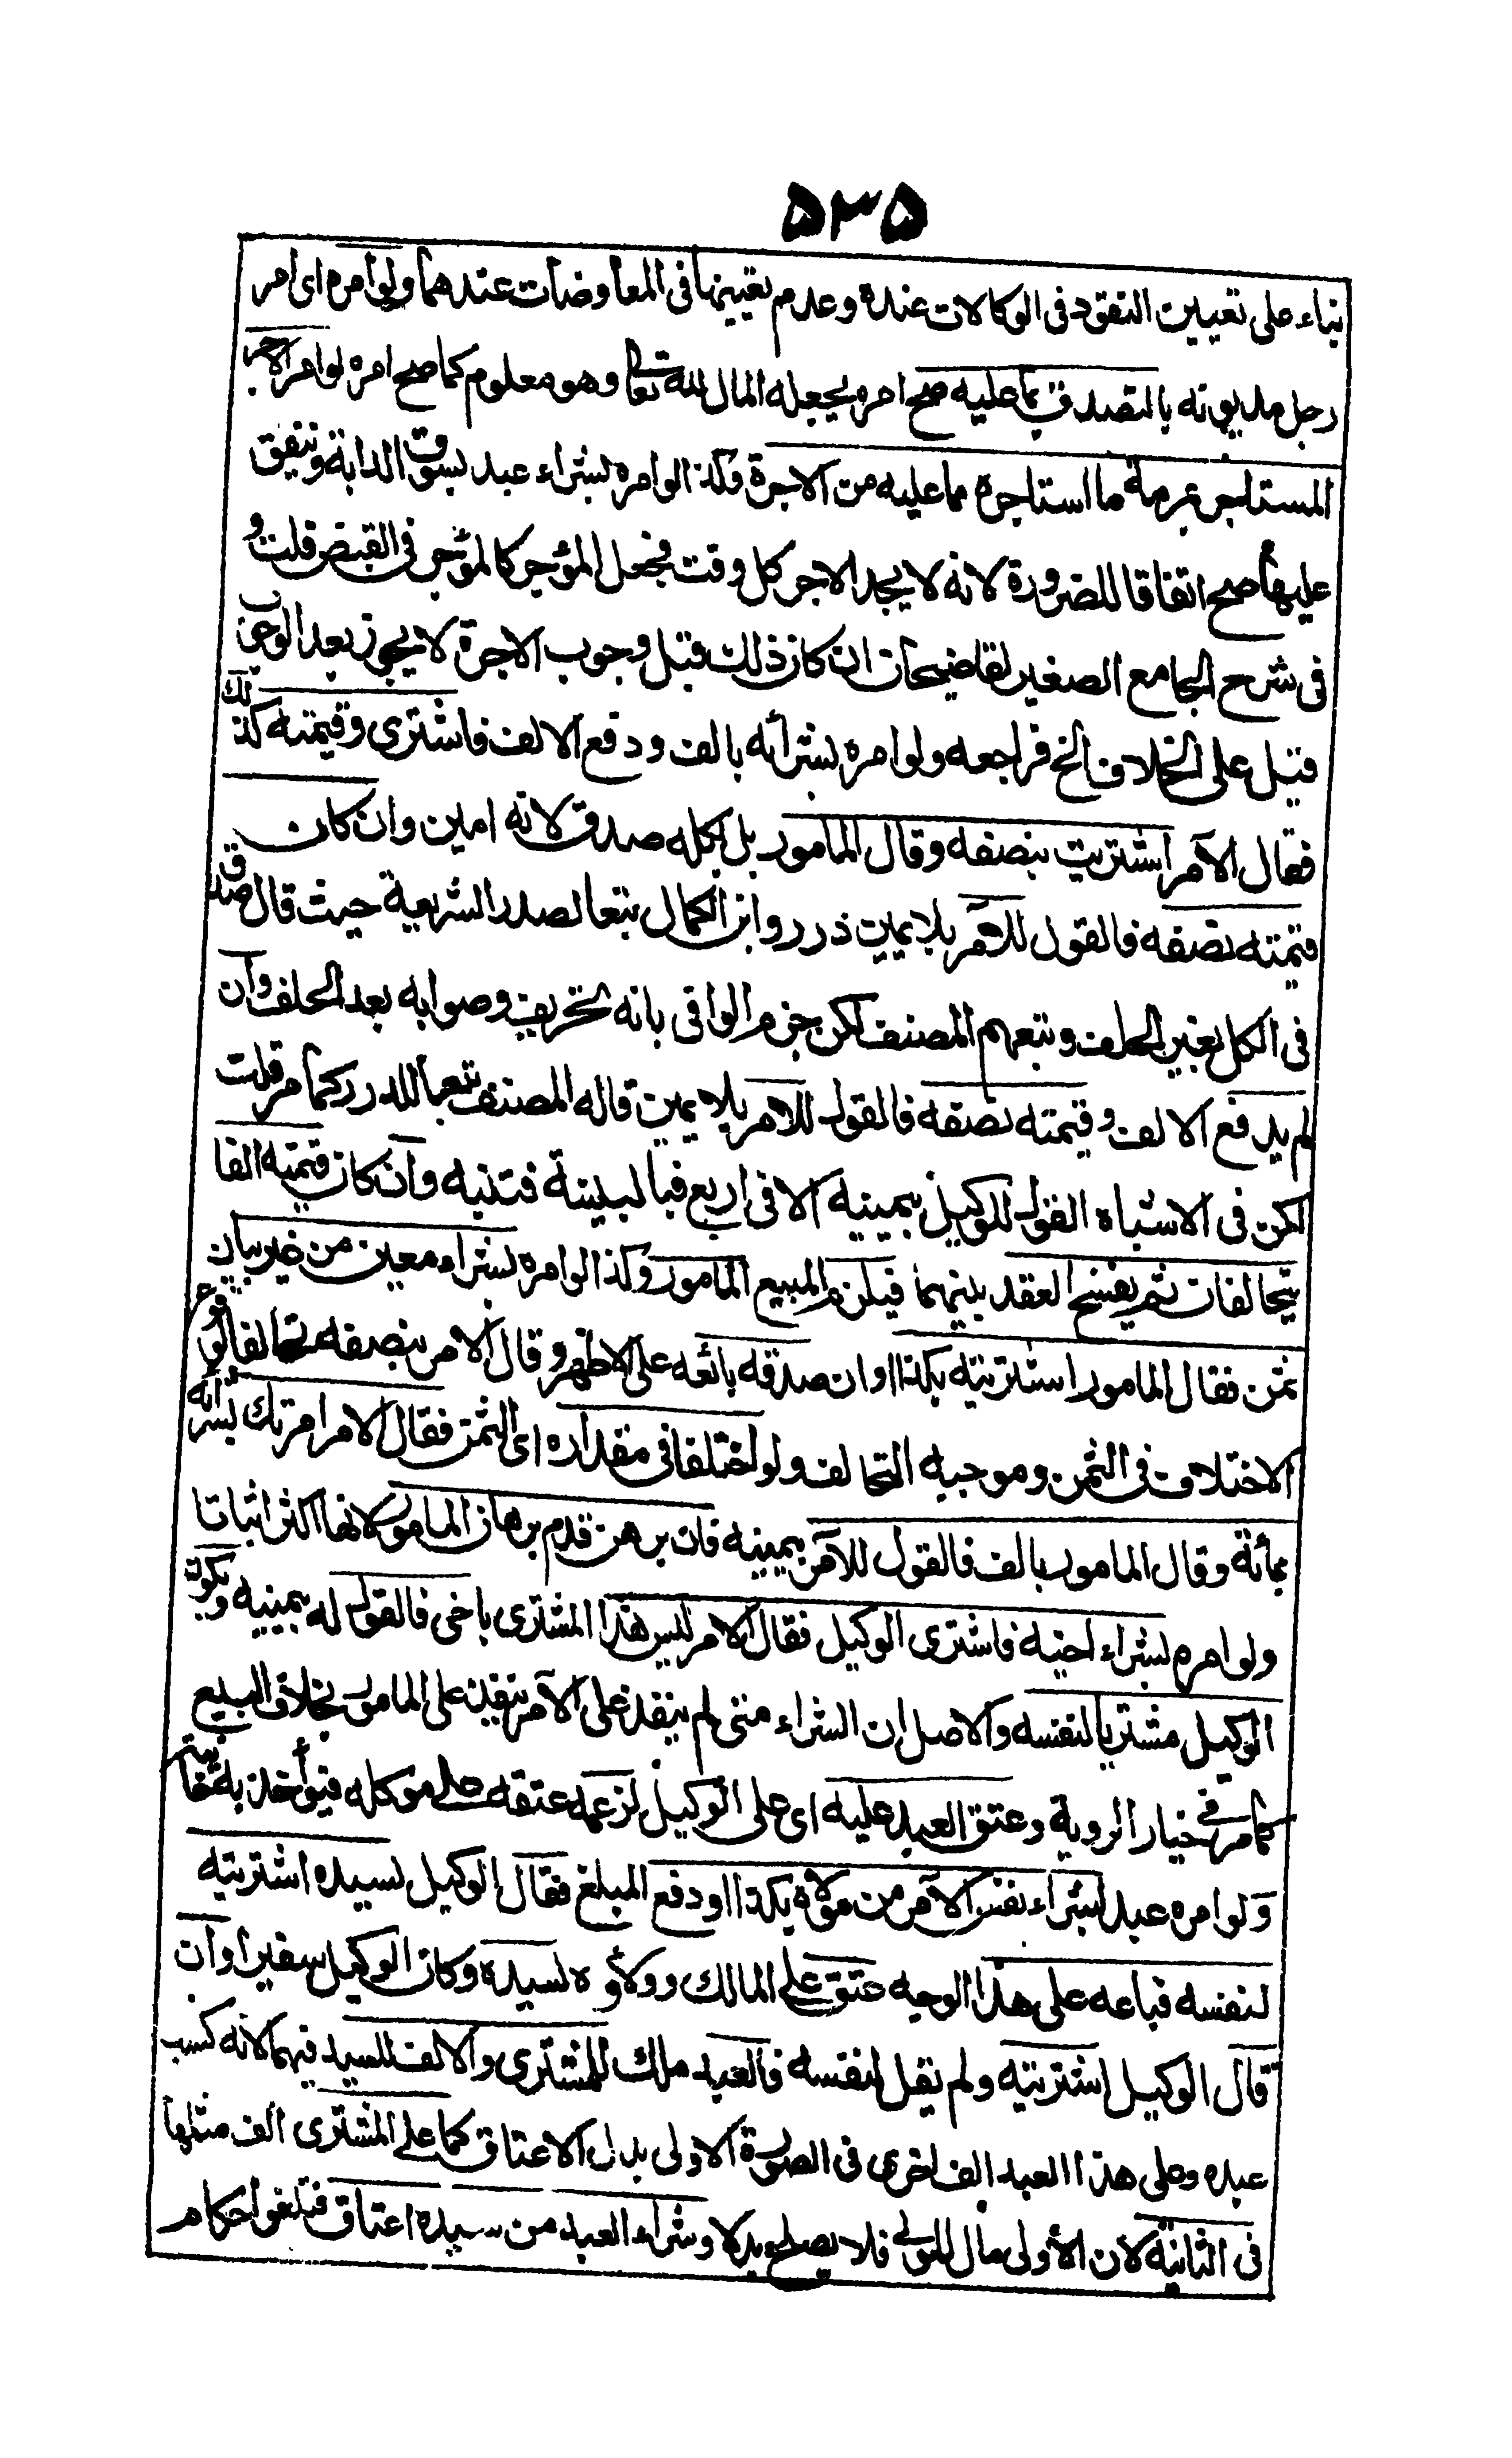 ۵۳۵
بناء على تعيين النقود فى الوكالات عنده وعدم تعيينها فى المعاوضات عندهما ولو امره اى امر
رجل مديونه بالتصدق بما عليه صح امره بجعله المال لله تعا وهو معلوم كما صح امره لو امر الآجر
المستاجر بمرمة ما استاجره مما عليه من الاجرة وكذا لو امره بشراء عبد يسوق الدابة وينفق
عليها صح اتفاقا للضرورة لانه لا يجد الاجر كل وقت فجعل المؤجر كالمؤجر فى القبض قلت و
فى شرح الجامع الصغير لقاضيخان ان كان ذلك قبل وجوب الاجرة لا يجوز بعد الوجوب
قيل على الخلاف الخ فراجعه ولو امره بشرائه بالف ودفع الالف فاشترى وقيمته كذلك
فقال الآمر اشتريت بنصفه وقال المامور بل بكله صدق لانه امين وان كان
قيمته نصفه فالقول للآمر بلا يمين درر وابن الكمال تبعا لصدر الشريعة حيث قال صدق
فى الكل بغير الحلف وتبعهم المصنف لكن جزم الوانى بانه تحريف وصوابه بعد الحلف وان
لم يدفع الالف وقيمته نصفه فالقول للآمر بلا يمين قاله المصنف تبعا للدرر كما مر قلت
لكن فى الاشباه القول للوكيل بيمينه الا فى اربع فبالبينة فتنبه وان كان قيمته الفا
يتحالفان ثم يفسخ العقد بينهما فيلزم المبيع المامور وكذا لو امره بشراء معين من غير بيان
ثمن فقال المامور اشتريته بكذا وان صدقه بائعه على الاظهر وقال الامر بنصفه تحالفا لوقوع
الاختلاف فى الثمن وموجبه التحالف ولو اختلفا فى مقداره اى الثمن فقال الامر امرتك بشرائه
بمائة وقال المامور بالف فالقول للآمر بيمينه فان برهن قدم برهان المامور لانها اكثر اثباتا
ولو امره بشراء اخيه فاشترى الوكيل فقال الامر ليس هذا المشترى باخى فالقول له بيمينه ويكون
الوكيل مشتريا لنفسه والاصل ان الشراء متى لم ينفذ على الآمر ينفذ على المامور بخلاف البيع
كما مر فى خيار الروية وعتق العبد عليه اى على الوكيل لزعمه عتقه على موكله فيؤاخذ به خانية
ولو امره عبد بشراء نفس الآمر من مولاه بكذا ودفع المبلغ فقال الوكيل لسيده اشتريته
لنفسه فباعه على هذا الوجه عتق على المالك وولاؤه لسيده وكان الوكيل سفيرا وان
قال الوكيل اشتريته ولم يقل لنفسه فالعبد ملك للمشترى والالف للسيد فيهما لانه كسب
عبده وعلى هذا العبد الف اخرى فى الصورة الاولى بدل الاعتاق كما على المشترى الف مثلها
فى الثانية لان الأولى مال المولى فلا يصلح بدلا وشراء العبد من سيده اعتاق فتلغوا احكام